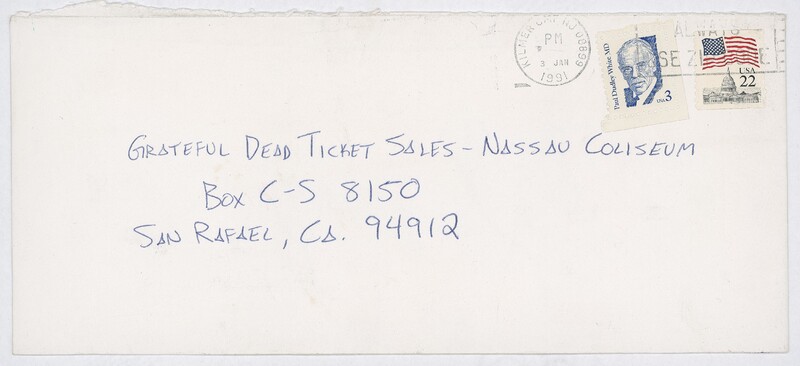 KILMER GMF NJ 08899
PM
3 JAN
1991
ALWAYS
USE ZIP CODE
Paul Dudley White MD
USA 3
USA
22
GRATEFUL DEAD TICKET SALES - NASSAU COLISEUM
BOX C-S 8150
SAN RAFAEL, CA. 94912